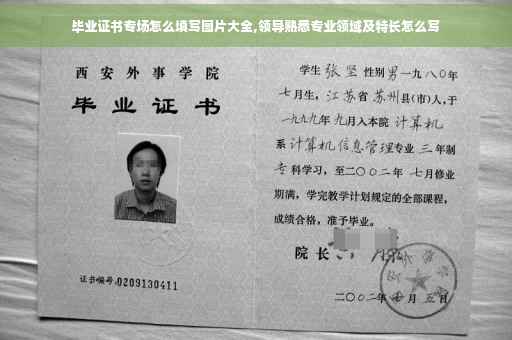 毕业证书专场怎么填写图片大全,领导熟悉专业领域及特长怎么写
西安外事学院
毕业证书
证书编号:0209130411
学生 张坚 性别 男 一九八0年
七月生,江苏省 苏州县(市)人,于
一九九九年 九月入本院 计算机
系 计算机信息管理专业 三 年制
专科学习,至二〇〇二年 七月修业
期满,学完教学计划规定的全部课程,
成绩合格,准予毕业。
院长
二〇〇二年 七月 五日